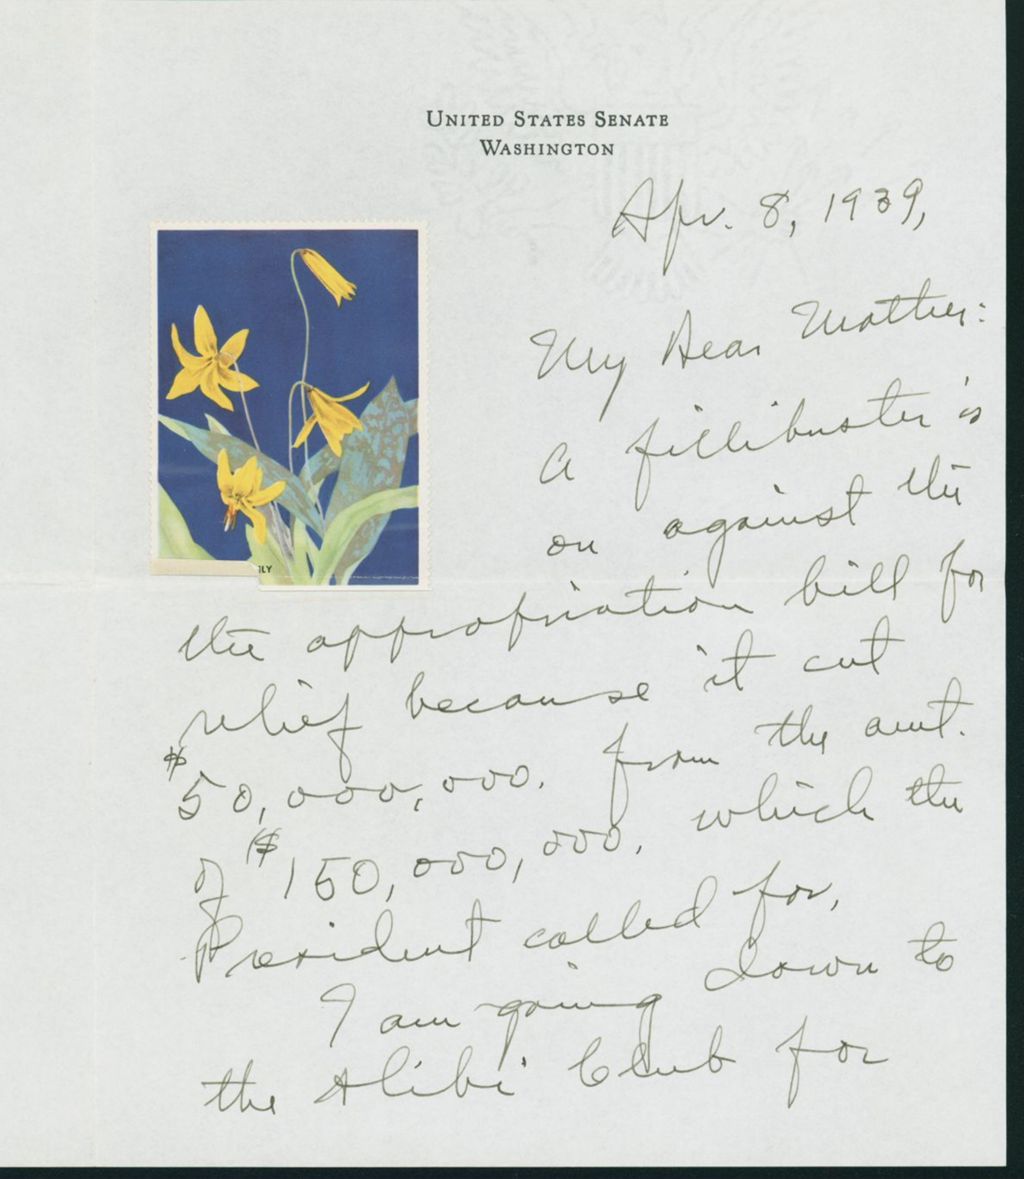 UNITED STATES SENATE
WASHINGTON
Apr. 8, 1939,
My Dear Mother:
A fillibuster is
on against the
ILY
the appropriation bill for
relief because it cut
$50,000,000. from the amt.
of $150,000,000. which the
President called for.
I am going down to
the Alibi Club for